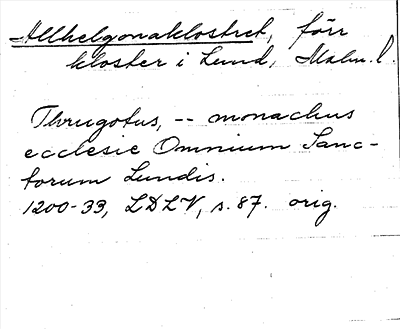 Allhelgonaklostret, förr
kloster i Lund, Malm. l.
Thrugotus, -- monachus
ecclesie Omnium Sanc-
torum Lundis.
1200-33, LDLV, s. 87. orig.